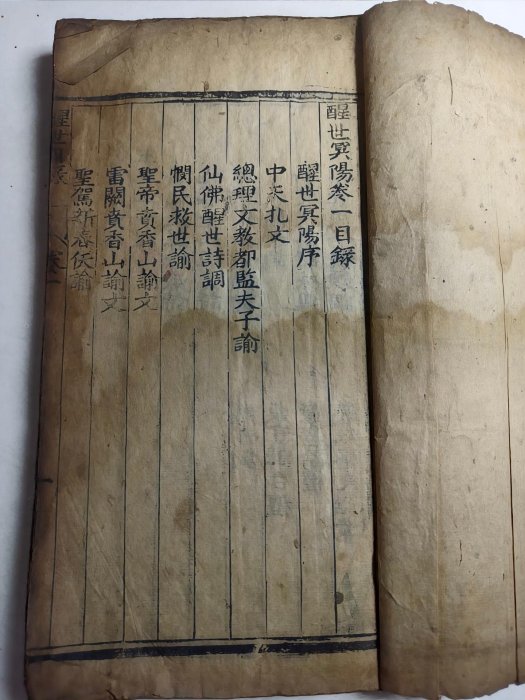 醒世冥陽卷一目錄
醒世冥陽序
中天扎文
總理文教都監夫子諭
仙佛醒世詩調
憫民救世諭
聖帝賁香山諭文
雷闕賁香山諭文
聖駕新春伏諭
醒世
卷一